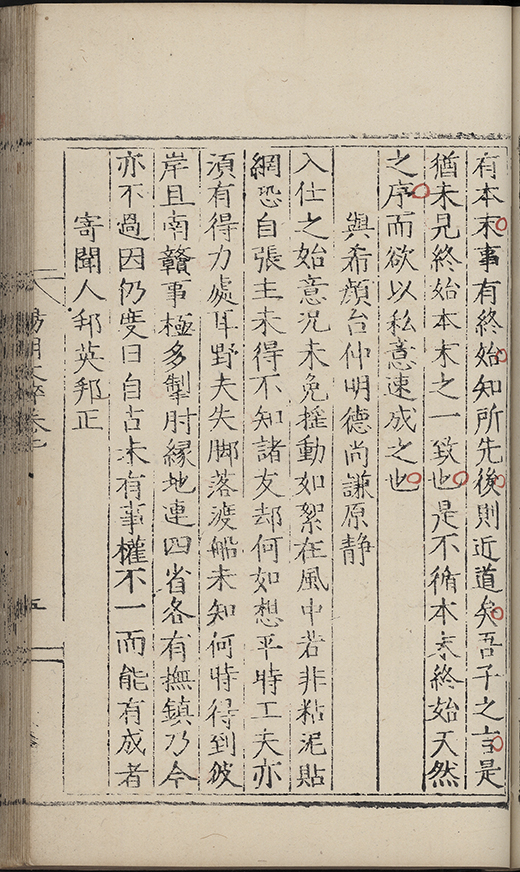 有本末事有終始知所先後則近道矣吾子之言是
猶未見終始本末之一致也是不循本末終始天然
之序而欲以私意速成之也
與希顏台仲明德尚謙原静
入仕之始意况未免摇動如絮在風中若非粘泥貼
網恐自張主未得不知諸友却何如想平時工夫亦
須有得力處耳野夫失脚落渡船未知何時得到彼
岸且南贛事極多掣肘緣地連四省各有撫鎮乃今
亦不過因仍度日自古未有事權不一而能有成者
寄聞人邦英邦正
陽明文粹卷七
五